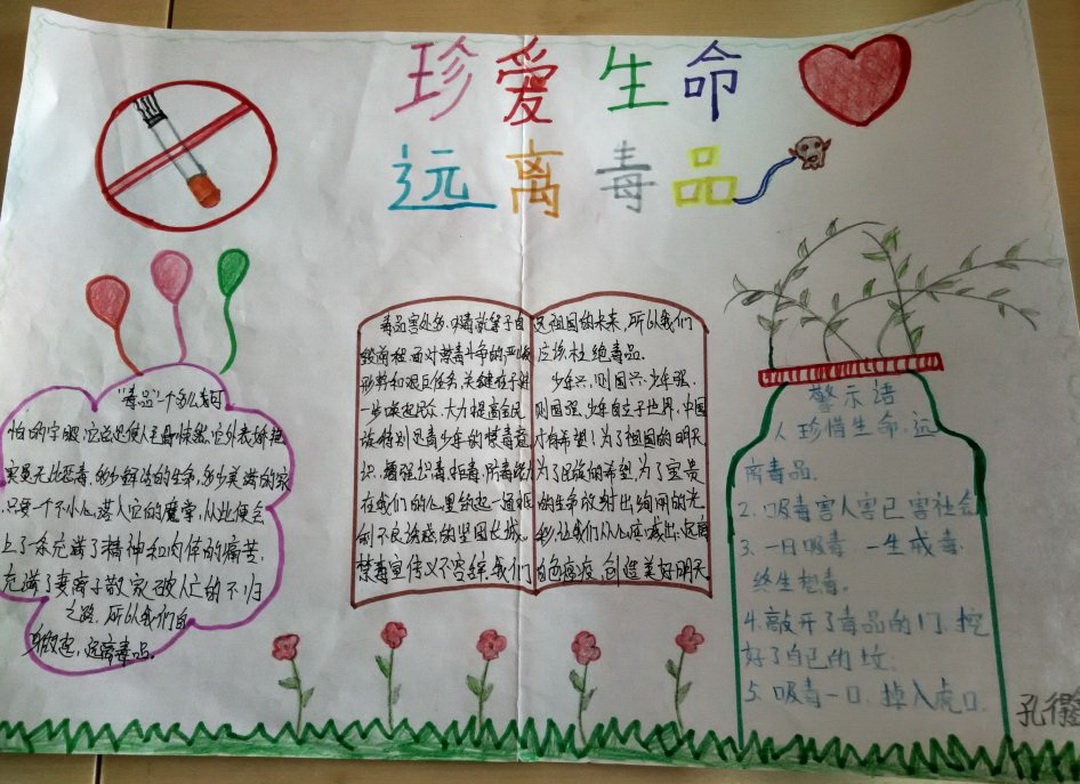 珍爱生命
远离毒品
"毒品"一个多么有可
怕的字眼,它总
实质无比恶毒,多少鲜活的生命,多少美满的家
只要一个不小心,落入它的魔掌,从此便会
上了一条充满了精神和肉体的痛苦,
充满了妻离子散家破人亡的不归
之路。所以我们自
身做起,远离毒品。
毒品害处多,吸毒就等于自
毁前程,面对禁毒斗争的严峻
形势和艰巨任务,关键在于进
一步唤起民众,大力提高全民
族特别是青少年的禁毒意
识,增强识毒、拒毒、防毒能力
在我们的心里筑起一道抵
制不良诱惑的坚固长城。
禁毒宣传义不容辞,我们
是祖国的未来,所以我们
应该杜绝毒品。
少年兴,则国兴,少年强,
则国强,少年自立于世界,中国
才有希望!为了祖国的明天
为了民族的希望,为了宝贵
的生命放射出绚丽的光
彩,让我们从心底喊出:远离
白色瘟疫,创造美好明天
警示语
1、珍惜生命,远
离毒品。
2.吸毒害人害己害社会
3、一日吸毒 一生戒毒,
终生想毒。
4.敲开了毒品的门,挖
好了自己的坟;
5、吸毒一口,掉入虎口。
孔得